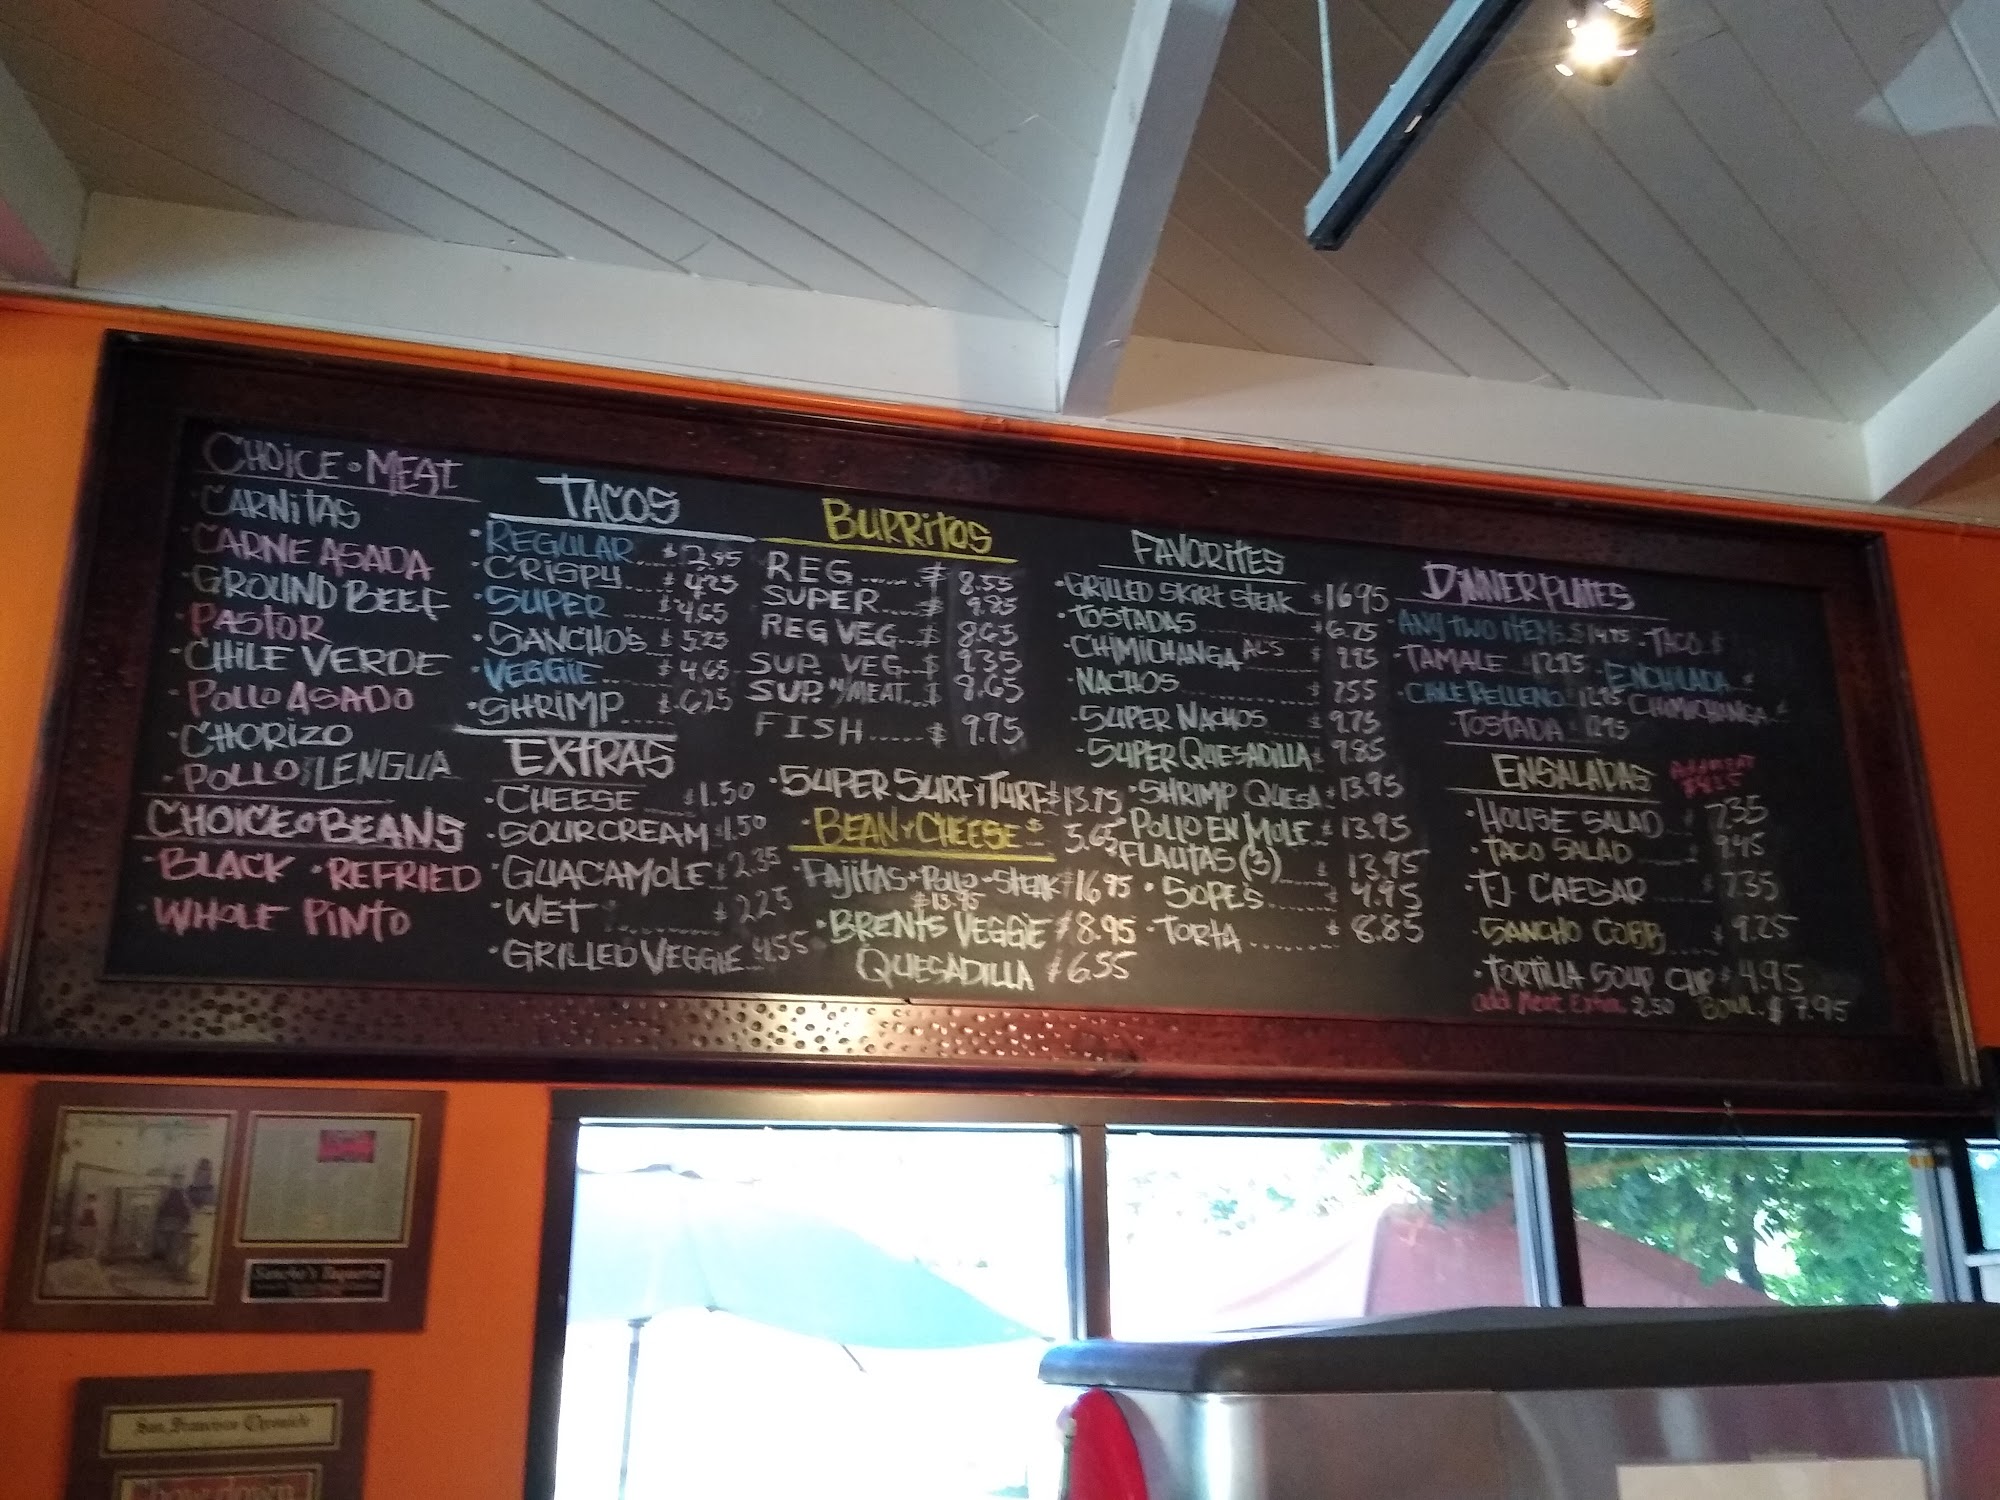 CHOICE • MEAT
• CARNITAS
• CARNE ASADA
• GROUND BEEF
• PASTOR
• CHILE VERDE
• POLLO ASADO
• CHORIZO
• POLLO LENGUA
CHOICE • BEANS
• BLACK • REFRIED
• WHOLE PINTO
TACOS
• REGULAR $2.85
• CRISPY $4.25
• SUPER $4.65
• SANCHOS $5.25
• VEGGIE $4.65
• SHRIMP $6.25
EXTRAS
• CHEESE $1.50
• SOUR CREAM $1.50
• GUACAMOLE $2.35
• WET $2.25
• GRILLED VEGGIE 4.55
BURRITOS
REG $8.55
SUPER $9.85
REG VEG $8.65
SUP. VEG $9.35
SUP. W/MEAT $8.65
FISH $9.95
• SUPER SURF Y TURF $13.95
• BEAN Y CHEESE $5.65
• FAJITAS • POLLO • STEAK $16.95
$13.95
• BRENTS VEGGIE $8.95
QUESADILLA $6.55
FAVORITES
• GRILLED SKIRT STEAK $16.95
• TOSTADAS $6.75
• CHIMICHANGA ALS $9.95
• NACHOS $7.55
• SUPER NACHOS $9.75
• SUPER QUESADILLA $9.85
• SHRIMP QUESA $13.95
• POLLO EN MOLE $13.95
FLAUTAS (3) $13.95
• SOPE'S $4.95
• TORTA $8.85
DINNER PLATES
• ANY TWO ITEMS $14.95 • TACO $
• TAMALE $12.95 • ENCHILADA $
• CHILE RELLENO $12.95 CHIMICHANGA $
• TOSTADA $12.95
ENSALADAS
Add MEAT
• HOUSE SALAD $7.35
• TACO SALAD $9.45
• TJ CAESAR $7.35
• SANCHO COBB $9.25
• TORTILLA SOUP CUP $4.95
add Meat Extra 2.50 BOWL $7.95
Sancho's Taqueria
San Francisco Chronicle
Chowdown